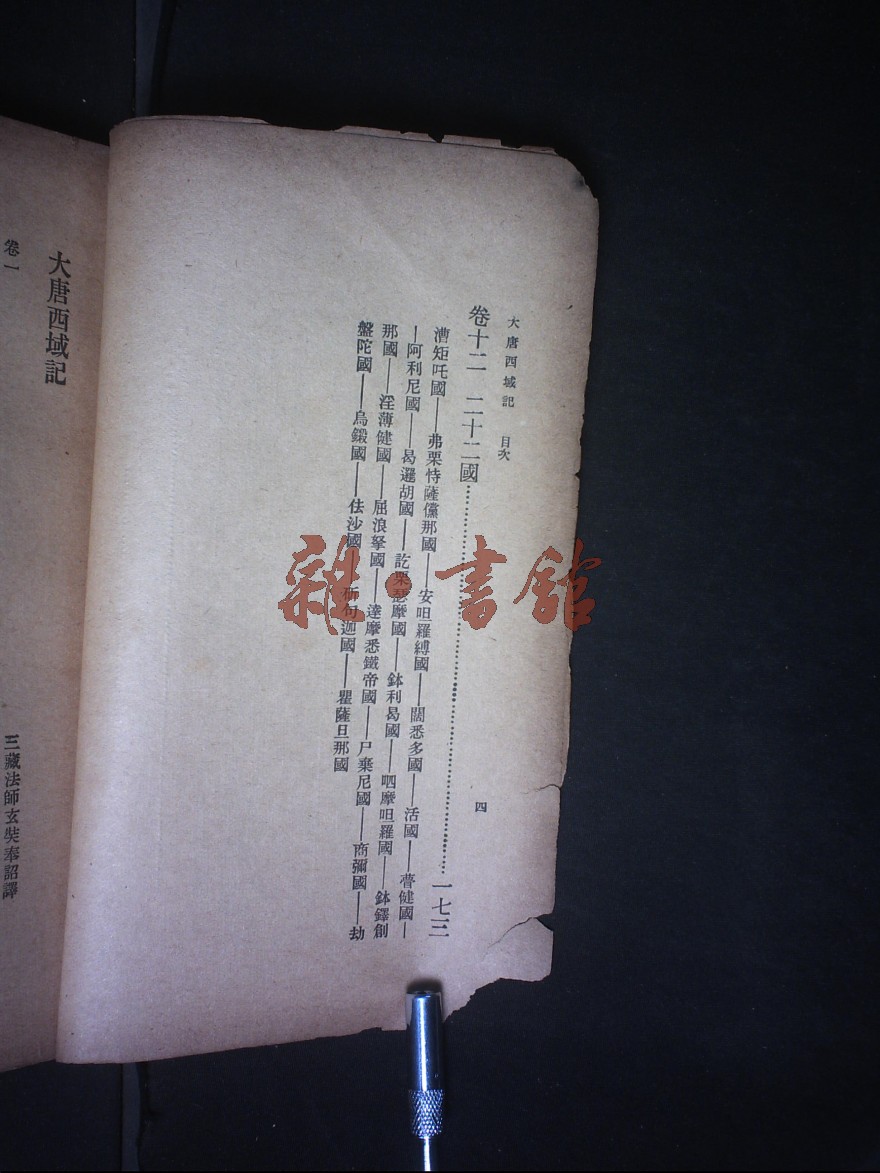 大唐西域記 目次 四
卷十二 二十二國……………………一七三
漕矩吒國——弗栗恃薩儻那國——安呾羅縛國——闊悉多國——活國——瞢健國—
—阿利尼國——曷邏胡國——訖栗瑟摩國——鉢利曷國——呬摩呾羅國——鉢鐸創
那國——淫薄健國——屈浪拏國——達摩悉鐵帝國——尸棄尼國——商彌國——劫
盤陀國——烏鎩國——佉沙國——斫句迦國——瞿薩旦那國
大唐西域記
三藏法師玄奘奉詔譯
卷一
雜·書館